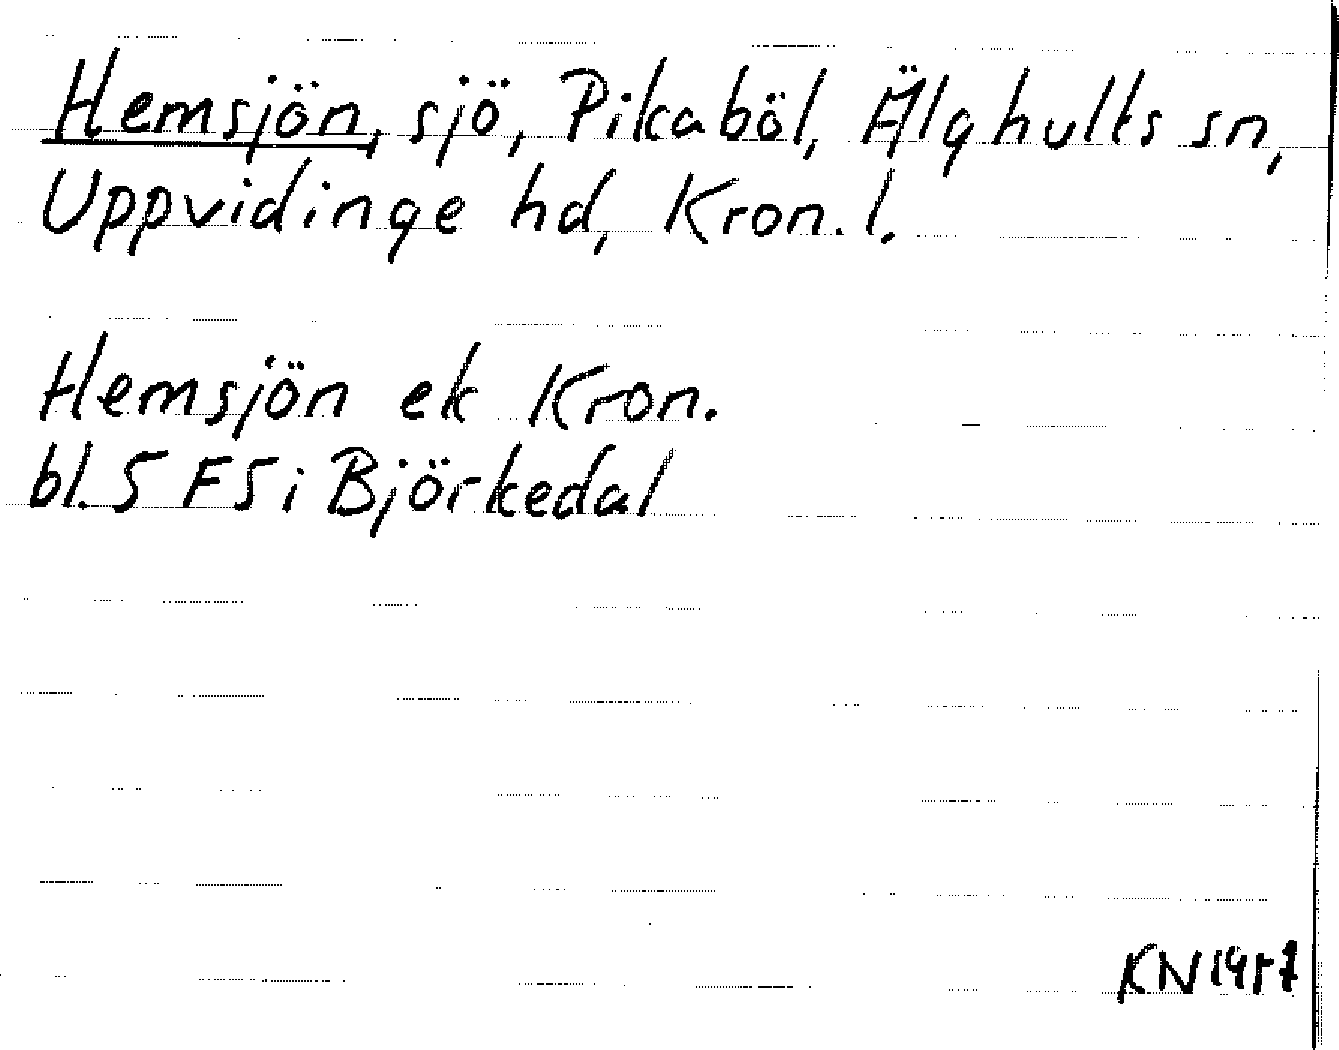 Hemsjön, sjö, Pikaböl, Älghults sn,
Uppvidinge hd, Kron. l.
Hemsjön ek Kron.
bl. 5 F5i Björkedal
KN1957